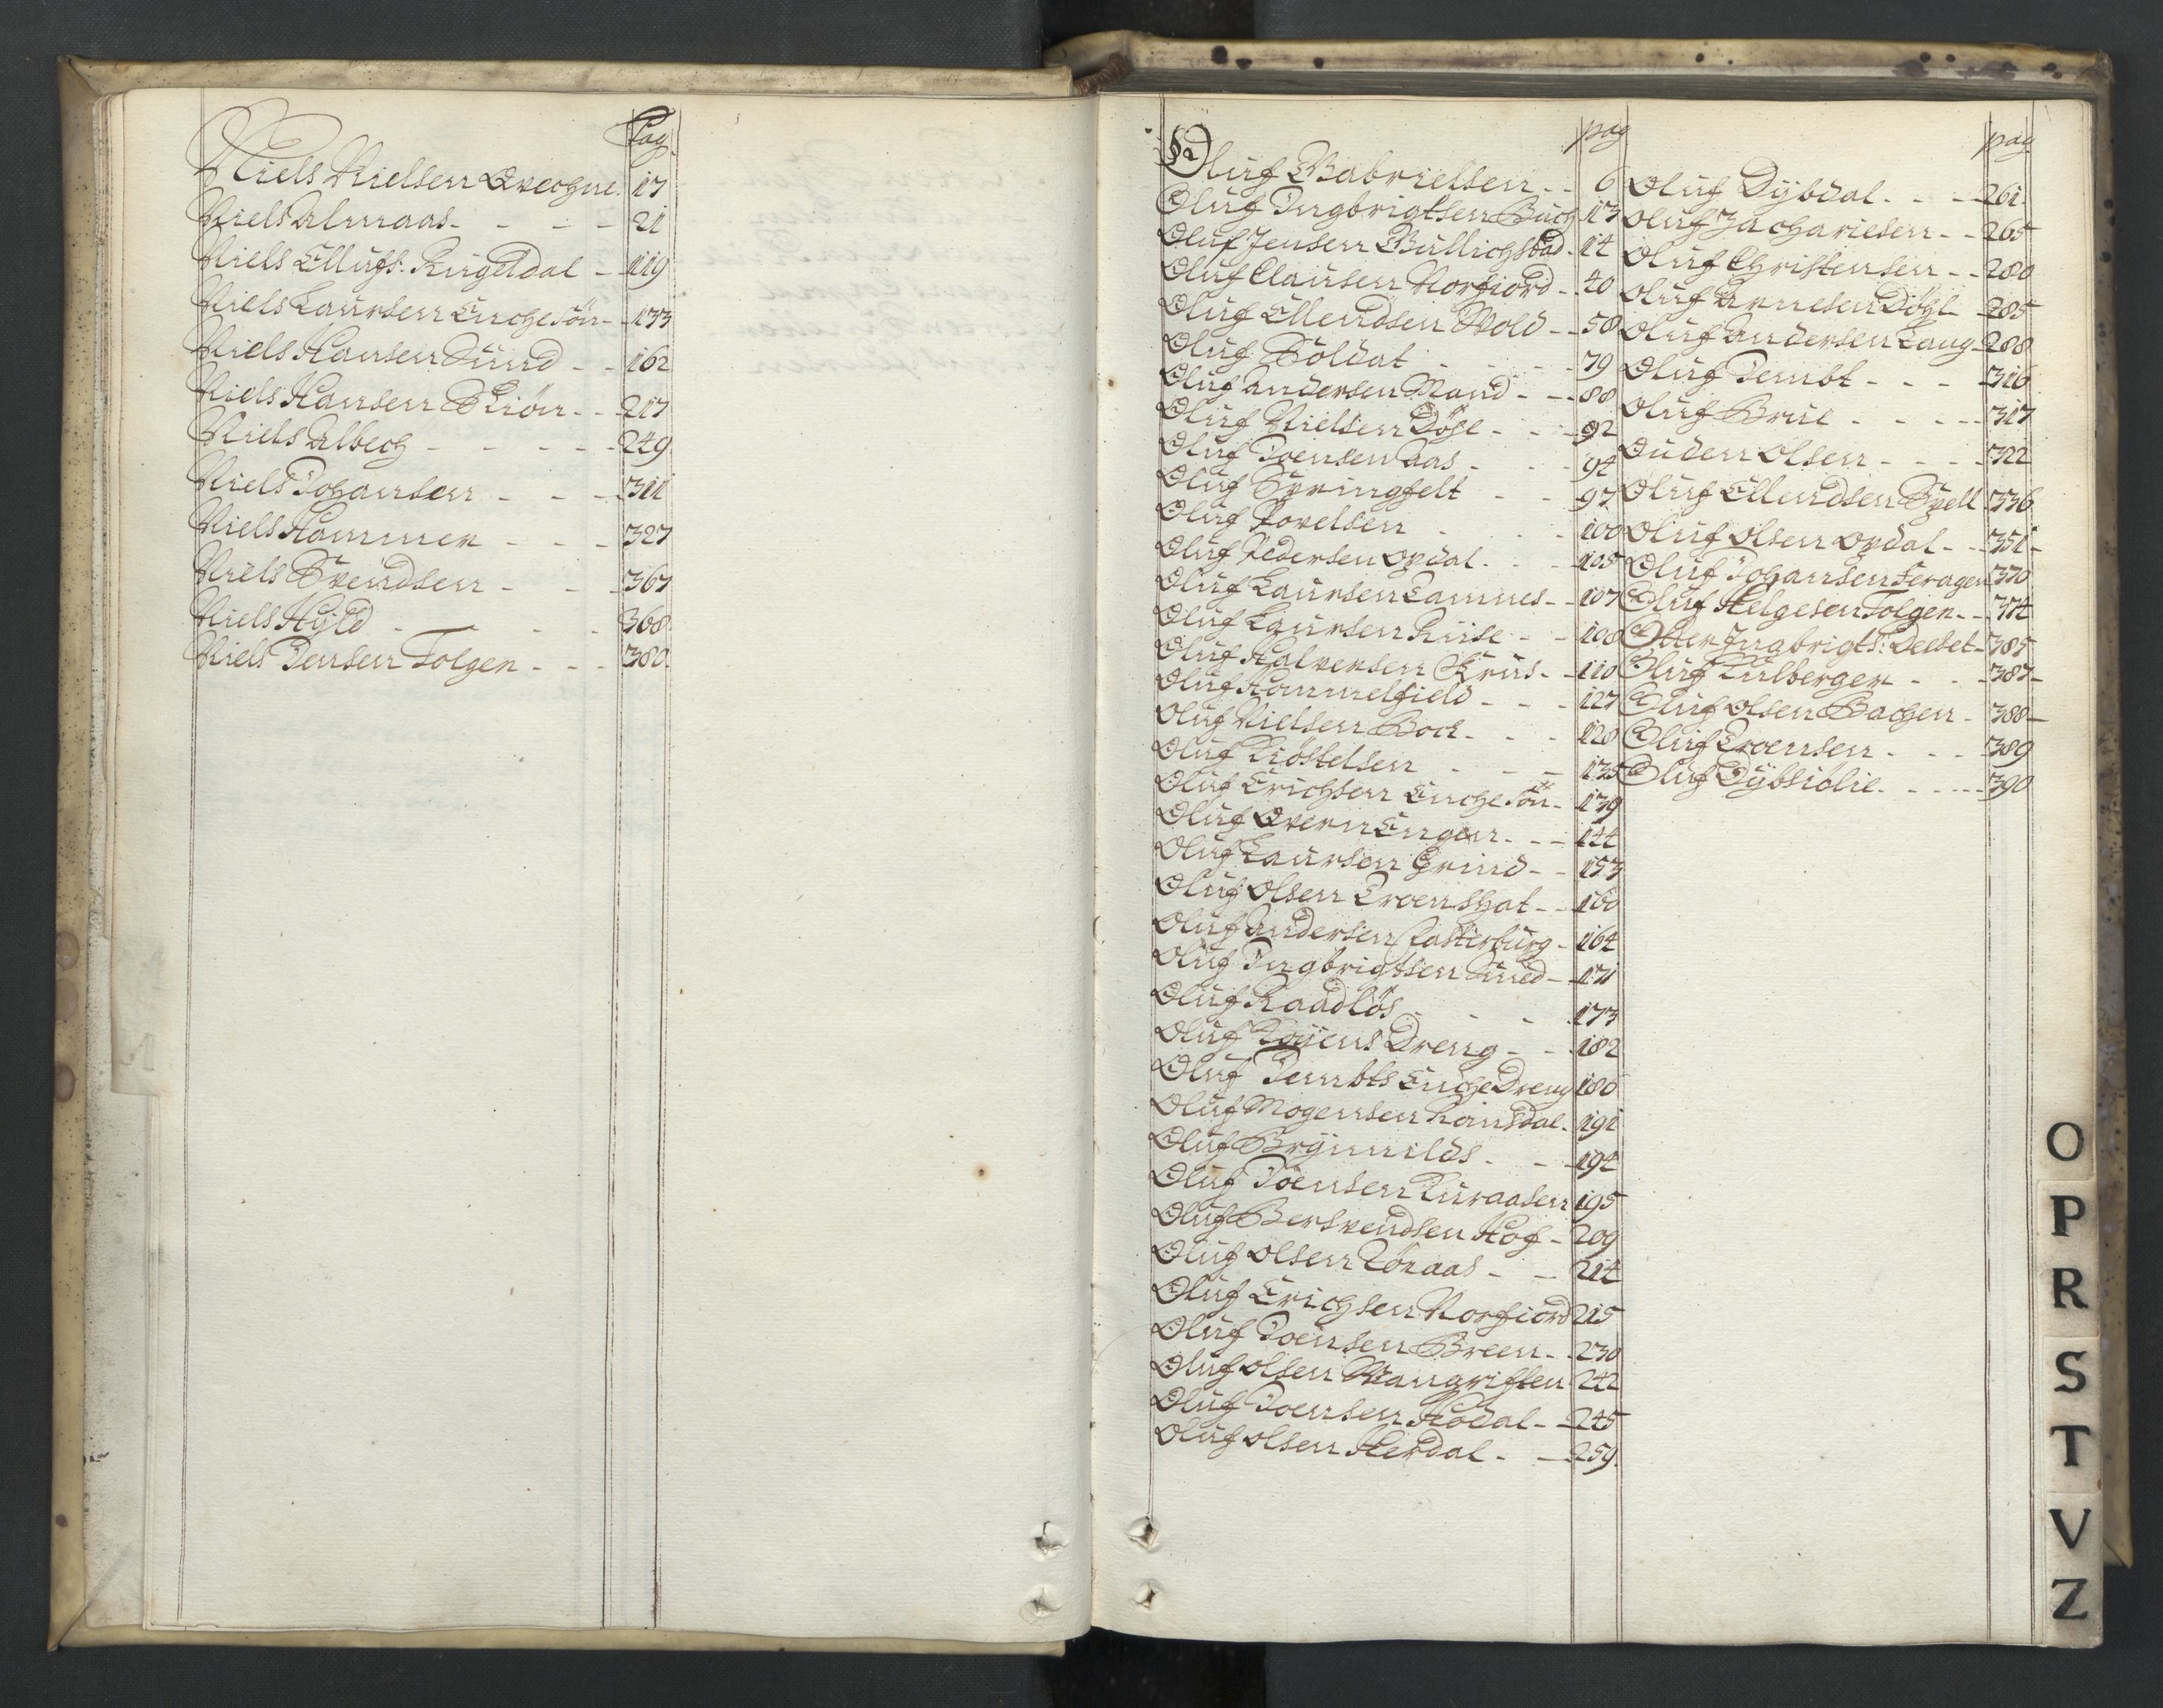 Pag
Niels Nielsen Qvechne. 17
Niels Almaas - - - - 21
Niels Ellufs: Ringeldal - 119
Niels Laursen Enche Sön - 133
Niels Hansen Sund - - 162
Niels Hansen Skiön - - 217
Niels Albech - - - - - 249
Niels Johansen - - - 311
Niels Hammer - - - 327
Niels Svendsen - - - 367
Niels Hyld - - - - 368
Niels Jensen Tolgen - - - 380
pag
Oluf Gabrielsen - - 6
Oluf Ingbrigtsen Buch 13
Oluf Jensen Gullichstad - 14
Oluf Clausen Norfiord - 40
Oluf Ellendsen Wold - - 58
Oluf Soldat - - - - 79
Oluf Andersen Mand - - 88
Oluf Nielsen Döhl - - 92
Oluf Joensen Aas - - - 94
Oluf Springfelt - - 97
Oluf Povelsen - - - 100
Oluf Pedersen Opdal - - - 105
Oluf Laursen Tamnes - - 107
Oluf Laursen Riise - - 108
Oluf Halvorsen Krus - - 110
Oluf Hammelfield - - - 127
Oluf Nielsen Bock - - - 128
Oluf Kiöstelsen - - - 135
Oluf Erichsen Enche Sön - 139
Oluf Qvern Engen - - - 144
Oluf Laursen Grind - - 153
Oluf Olsen Troenshat - - 160
Oluf Andersen Casterburg - 164
Oluf Ingbrigtsen Sund - 171
Oluf Raadlös - - - 173
Oluf Dreng - - 182
Oluf Jembts Enche Dreng 186
Oluf Mogensen Romsdal - 191
Oluf Brynnilds - - - 194
Oluf Joensen Kuraasen 195
Oluf Bersvendsen Hof - 209
Oluf Olsen Lönaas - - 214
Oluf Erichsen Norfiord 215
Oluf Joensen Breen - - 230
Oluf Olsen Vangriften 242
Oluf Joensen Hodal - - 245
Oluf Olsen Herdal - - 259
pag
Oluf Dybdal - - - 261
Oluf Zachariesen - - 265
Oluf Christensen - - 280
Oluf Arnesen Döhl - 285
Oluf Andersen Lang - 288
Oluf Jembt - - - 316
Oluf Brue - - - - 317
Ouden Olsen - - - - 322
Oluf Ellendsen Spell 336
Oluf Olsen Opdal - - 351
Oluf Johansen Feragen 370
Oluf Helgesen Tolgen - - 374
Otter Ingbrigts: Deeset - 385
Oluf Kulberger - - - 387
Oluf Olsen Bachen - 388
Oluf Troensen - - - 389
Oluf Dybsiölie - - - - 390
O
P
R
S
T
V
Z